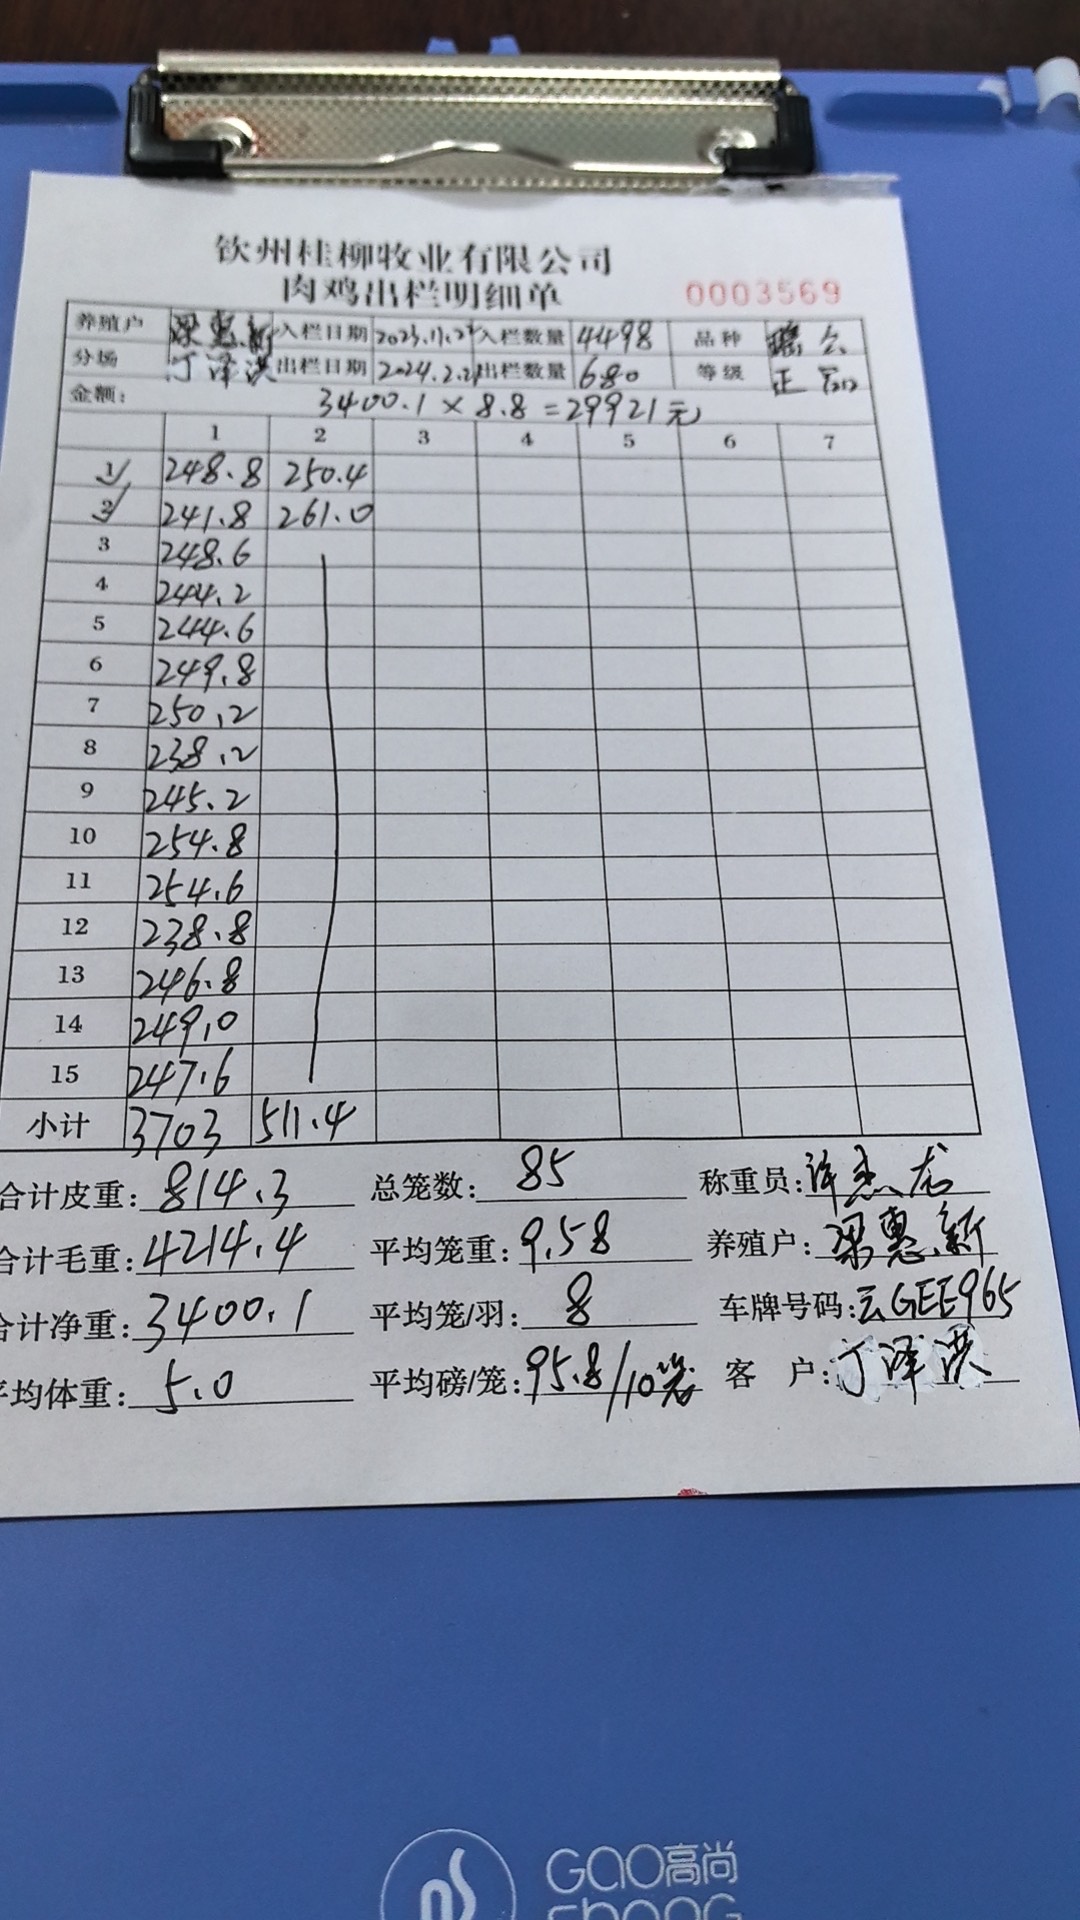 钦州桂柳牧业有限公司
肉鸡出栏明细单 0003569
养殖户 梁惠新 入栏日期 2023.11.27 入栏数量 4498 品种
分场 丁泽洪 出栏日期 2024.2.21 出栏数量 680 等级 正
金额: 3400.1 × 8.8 = 29921元
1 2 3 4 5 6 7
1 248.8 250.4
2 241.8 261.0
3 248.6
4 244.2
5 244.6
6 249.8
7 250.2
8 238.2
9 245.2
10 254.8
11 254.6
12 238.8
13 246.8
14 249.0
15 247.6
小计 3703 511.4
合计皮重: 814.3 总笼数: 85 称重员: 许杰龙
合计毛重: 4214.4 平均笼重: 9.58 养殖户: 梁惠新
合计净重: 3400.1 平均笼/羽: 8 车牌号码: 云GEE965
平均体重: 5.0 平均磅/笼: 95.8/10笼 客户: 丁泽洪
GAO高尚